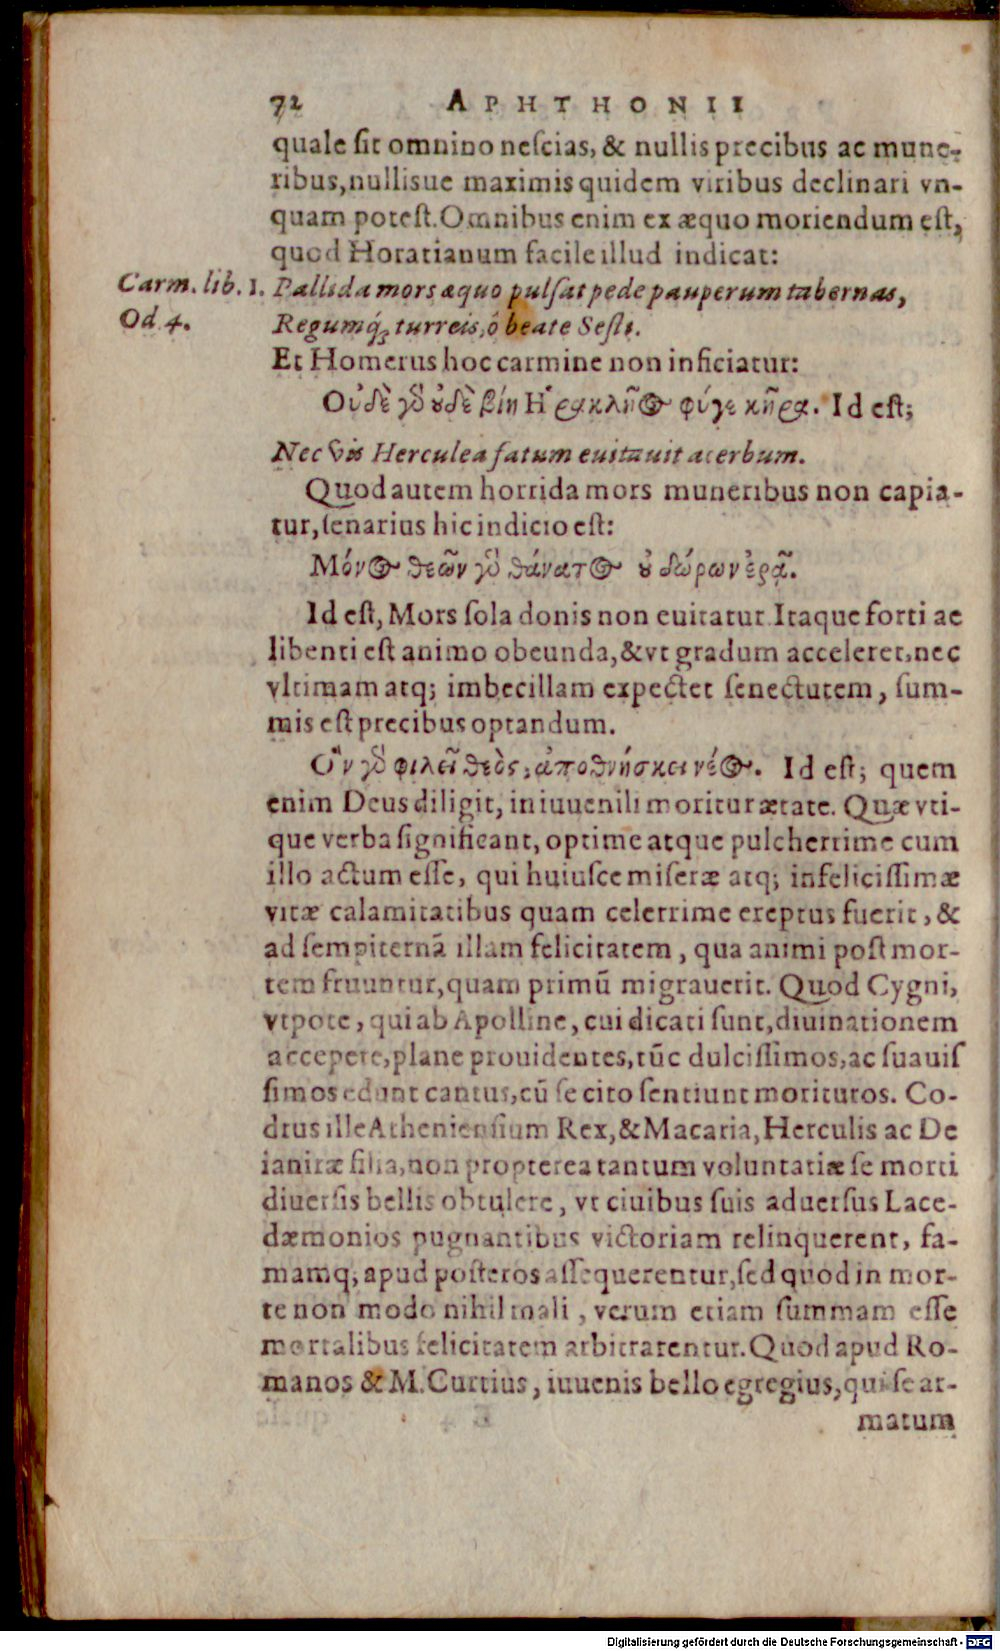 72 APHTHONII
quale sit omnino nescias, & nullis precibus ac mune-
ribus, nullisue maximis quidem viribus declinari vn-
quam potest. Omnibus enim ex æquo moriendum est,
quod Horatianum facile illud indicat:
Carm. lib. 1. Pallida mors æquo pulsat pede pauperum tabernas,
Od. 4. Regumq́; turreis, ô beate Sesti.
Et Homerus hoc carmine non inficiatur:
Οὐδὲ γὸ ȣδὲ βίη Ἡρακλῆος φύγε κῆρα. Id est;
Nec vis Herculea fatum euitauit acerbum.
Quod autem horrida mors muneribus non capia-
tur, senarius hic indicio est:
Μόνος θεῶν γὸ θάνατος ȣ δώρων ἐρᾷ.
Id est, Mors sola donis non euitatur. Itaque forti ac
libenti est animo obeunda, & vt gradum acceleret, nec
vltimam atq; imbecillam expectet senectutem, sum-
mis est precibus optandum.
Ὃν γὸ φιλεῖ θεὸς, ἀποθνήσκει νέος. Id est; quem
enim Deus diligit, in iuuenili moritur ætate. Quæ vti-
que verba significant, optime atque pulcherrime cum
illo actum esse, qui huiusce miseræ atq; infelicissimæ
vitæ calamitatibus quam celerrime ereptus fuerit, &
ad sempiternã illam felicitatem, qua animi post mor-
tem fruuntur, quam primũ migrauerit. Quod Cygni,
vtpote, qui ab Apolline, cui dicati sunt, diuinationem
accepere, plane prouidentes, tũc dulcissimos, ac suauis
simos edunt cantus, cũ se cito sentiunt morituros. Co-
drus ille Atheniensium Rex, & Macaria, Herculis ac De
ianiræ filia, non propterea tantum voluntatiæ se morti
diuersis bellis obtulere, vt ciuibus suis aduersus Lace-
dæmonios pugnantibus victoriam relinquerent, fa-
mamq; apud posteros assequerentur, sed quod in mor-
te non modo nihil mali, verum etiam summam esse
mortalibus felicitatem arbitrarentur. Quod apud Ro-
manos & M. Curtius, iuuenis bello egregius, qui se ar-
matum
Digitalisierung gefördert durch die Deutsche Forschungsgemeinschaft - DFG